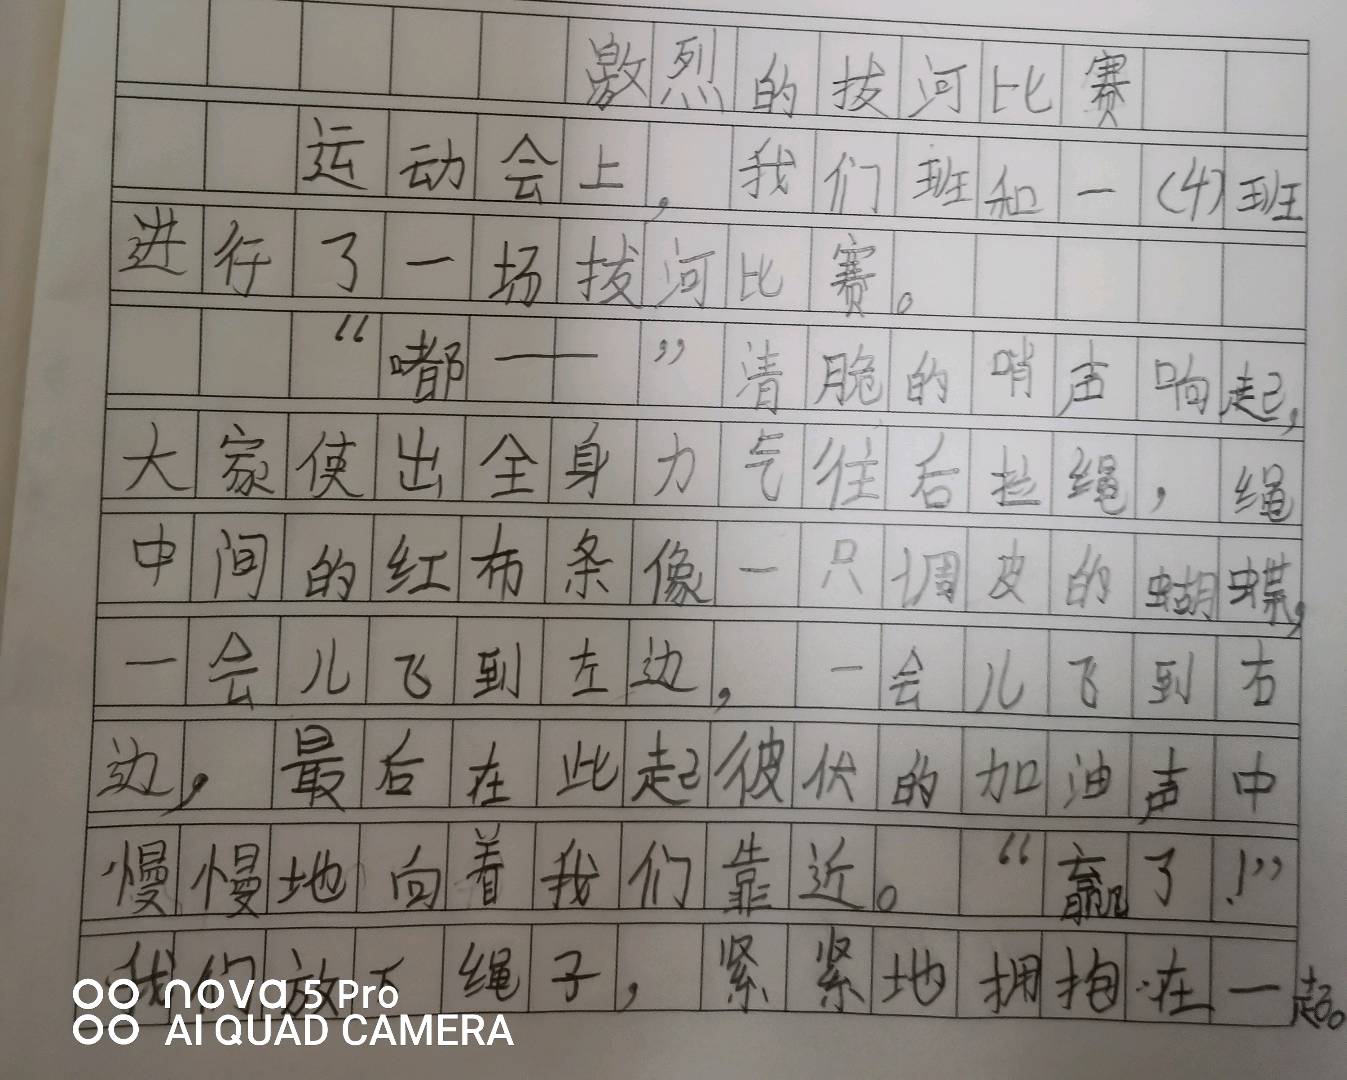 激烈的拔河比赛
运动会上，我们班和一(4)班
进行了一场拔河比赛。
“嘟——”清脆的哨声响起，
大家使出全身力气往后拉绳，绳
中间的红布条像一只调皮的蝴蝶，
一会儿飞到左边，一会儿飞到右
边，最后在此起彼伏的加油声中
慢慢地向着我们靠近。“赢了！”
我们放下绳子，紧紧地拥抱在一起。
nova 5 Pro
AI QUAD CAMERA